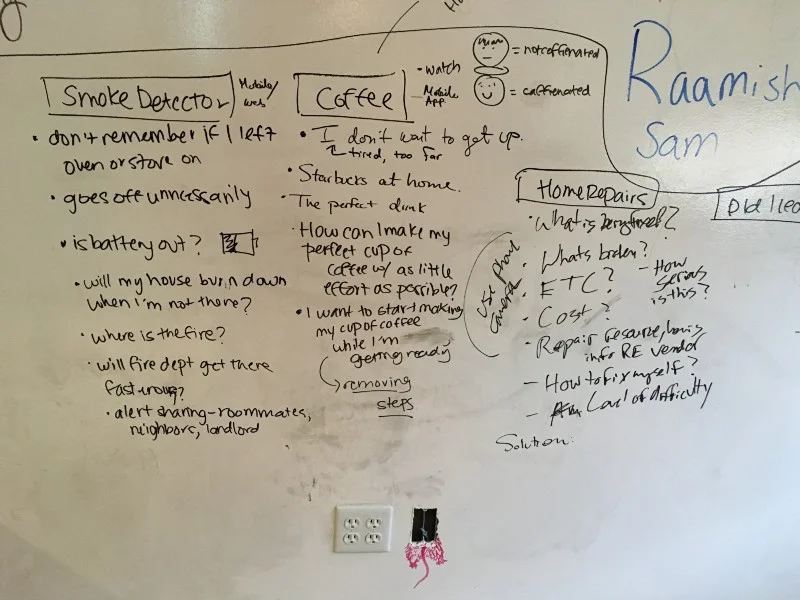 Smoke Detector
Mobile/
web
• don't remember if I left
oven or stove on
• goes off unncessarily
• is battery out?
• will my house burn down
when I'm not there?
• where is the fire?
• will fire dept get there
fast enough?
• alert sharing-roommates,
neighbors, landlord
Coffee
• watch
- Mobile
App
= not caffienated
= caffienated
• I don't want to get up.
tired, too far
• Starbucks at home.
• The perfect drink
• How can I make my
perfect cup of
coffee w/ as little
effort as possible?
• I want to start making
my cup of coffee
while I'm
getting ready
removing
steps
Raamish
Sam
Home Repairs
• What is
• Whats broken?
• ETC?
- How
serious
is this?
• Cost?
• Repair resource,
info RE vendor
- How to fix myself?
- Level of difficulty
use phone
camera
Solution: